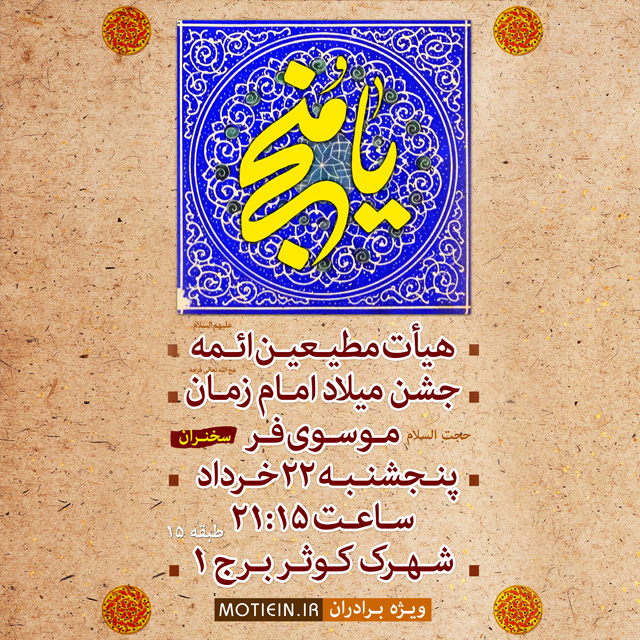 یا منجی
علیهم السلام
هیأت مطیعین ائمه
عج الله تعالی فرجه
جشن میلاد امام زمان
حجت السلام موسوی فر سخنران
پنجشنبه ۲۲ خرداد
ساعت ۲۱:۱۵
طبقه ۱۵
شهرک کوثر برج ۱
ویژه برادران MOTIEIN.IR